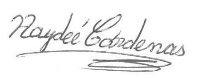 Naydeé Cardenas